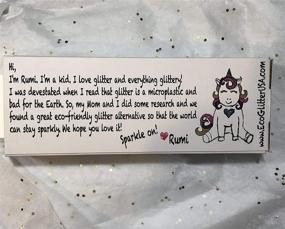 Hi,
I'm Rumi. I'm a kid, I love glitter and everything glittery.
I was devestated when I read that glitter is a microplastic and
bad for the Earth. So, my Mom and I did some research and we
found a great eco-friendly glitter alternative so that the world
can stay sparkly. We hope you love it!
Sparkle on!
Rumi
www.EcoGlitterUSA.com